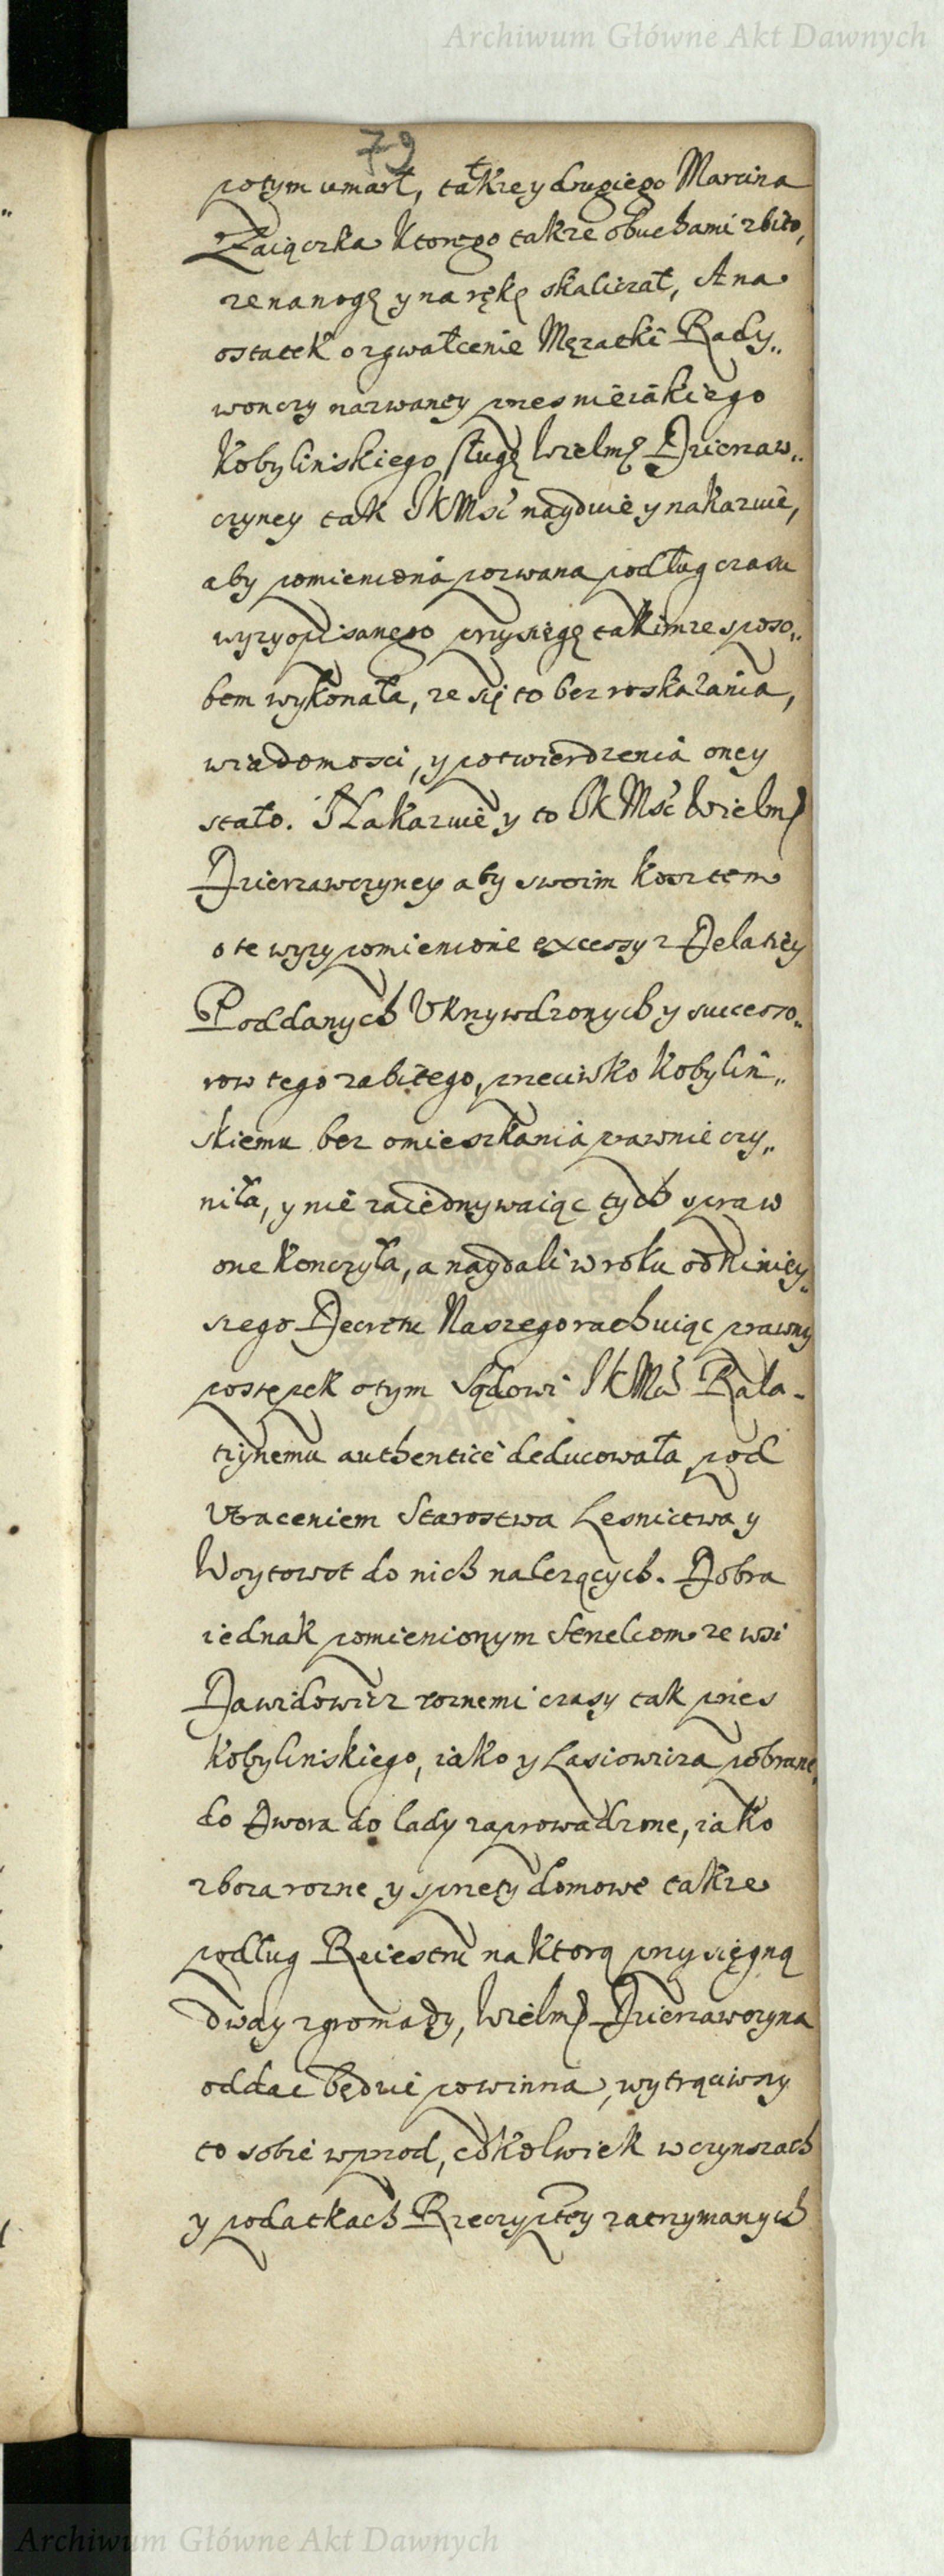 Archiwum Główne Akt Dawnych
79
potym umarł, także y drugiego Marcina
Zaiączka ktorego takze obuchami zbito,
ze na nogę y na rękę okaliczał, A na
ostatek o zgwałcenie Męzatki Rady„
wonczy nazwaney przes nieiakiego
Kobylinskiego sługę Wielmę Dzierzaw„
czyney tak JKMsć nayduie y nakazuie,
aby pomieniona pozwana podług czasu
wyzy opisanego przysięgę takimze sposo„
bem wykonała, ze się to bez roskazania,
wiadomosci, y potwierdzenia oney
stało. Nakazuie y to JKMsć Wielm
Dzierzawczyney aby swoim kosztem
o te wyzy pomienione excessy z Delatiey
Poddanych Ukrzywdzonych y successo„
row tego zabitego, przeciwko Kobylin„
skiemu bez omieszkania prawnie czy„
niła, y nie zaiednywaiąc tych spraw
one konczyła, a naydali w roku od niniey„
szego Decretu Naszego rachuiąc prawny
postępek o tym Sądowi JKMsci Rela-
tzynemu authenticè deducowała pod
Utraceniem Starostwa Lesnictwa y
Woytowot do nich nalezących. Dobra
iednak pomienionym Strzelcom ze wsi
Dawidowicz roznemi czasy tak przes
Kobylinskiego, iako y Lasiowicza pobrane,
do Dwora do lady zaprowadzone, iako
zboza rozne y sprzety domowe takze
podług Reiestru na ktorą przysięgną
dway z gromady, Wielm Dzierzawczyna
oddac będzie powinna, wytrąciwszy
to sobie wprzod, cokolwiek w czynszach
y podatkach Rzeczyptey zatrzymanych
Archiwum Główne Akt Dawnych